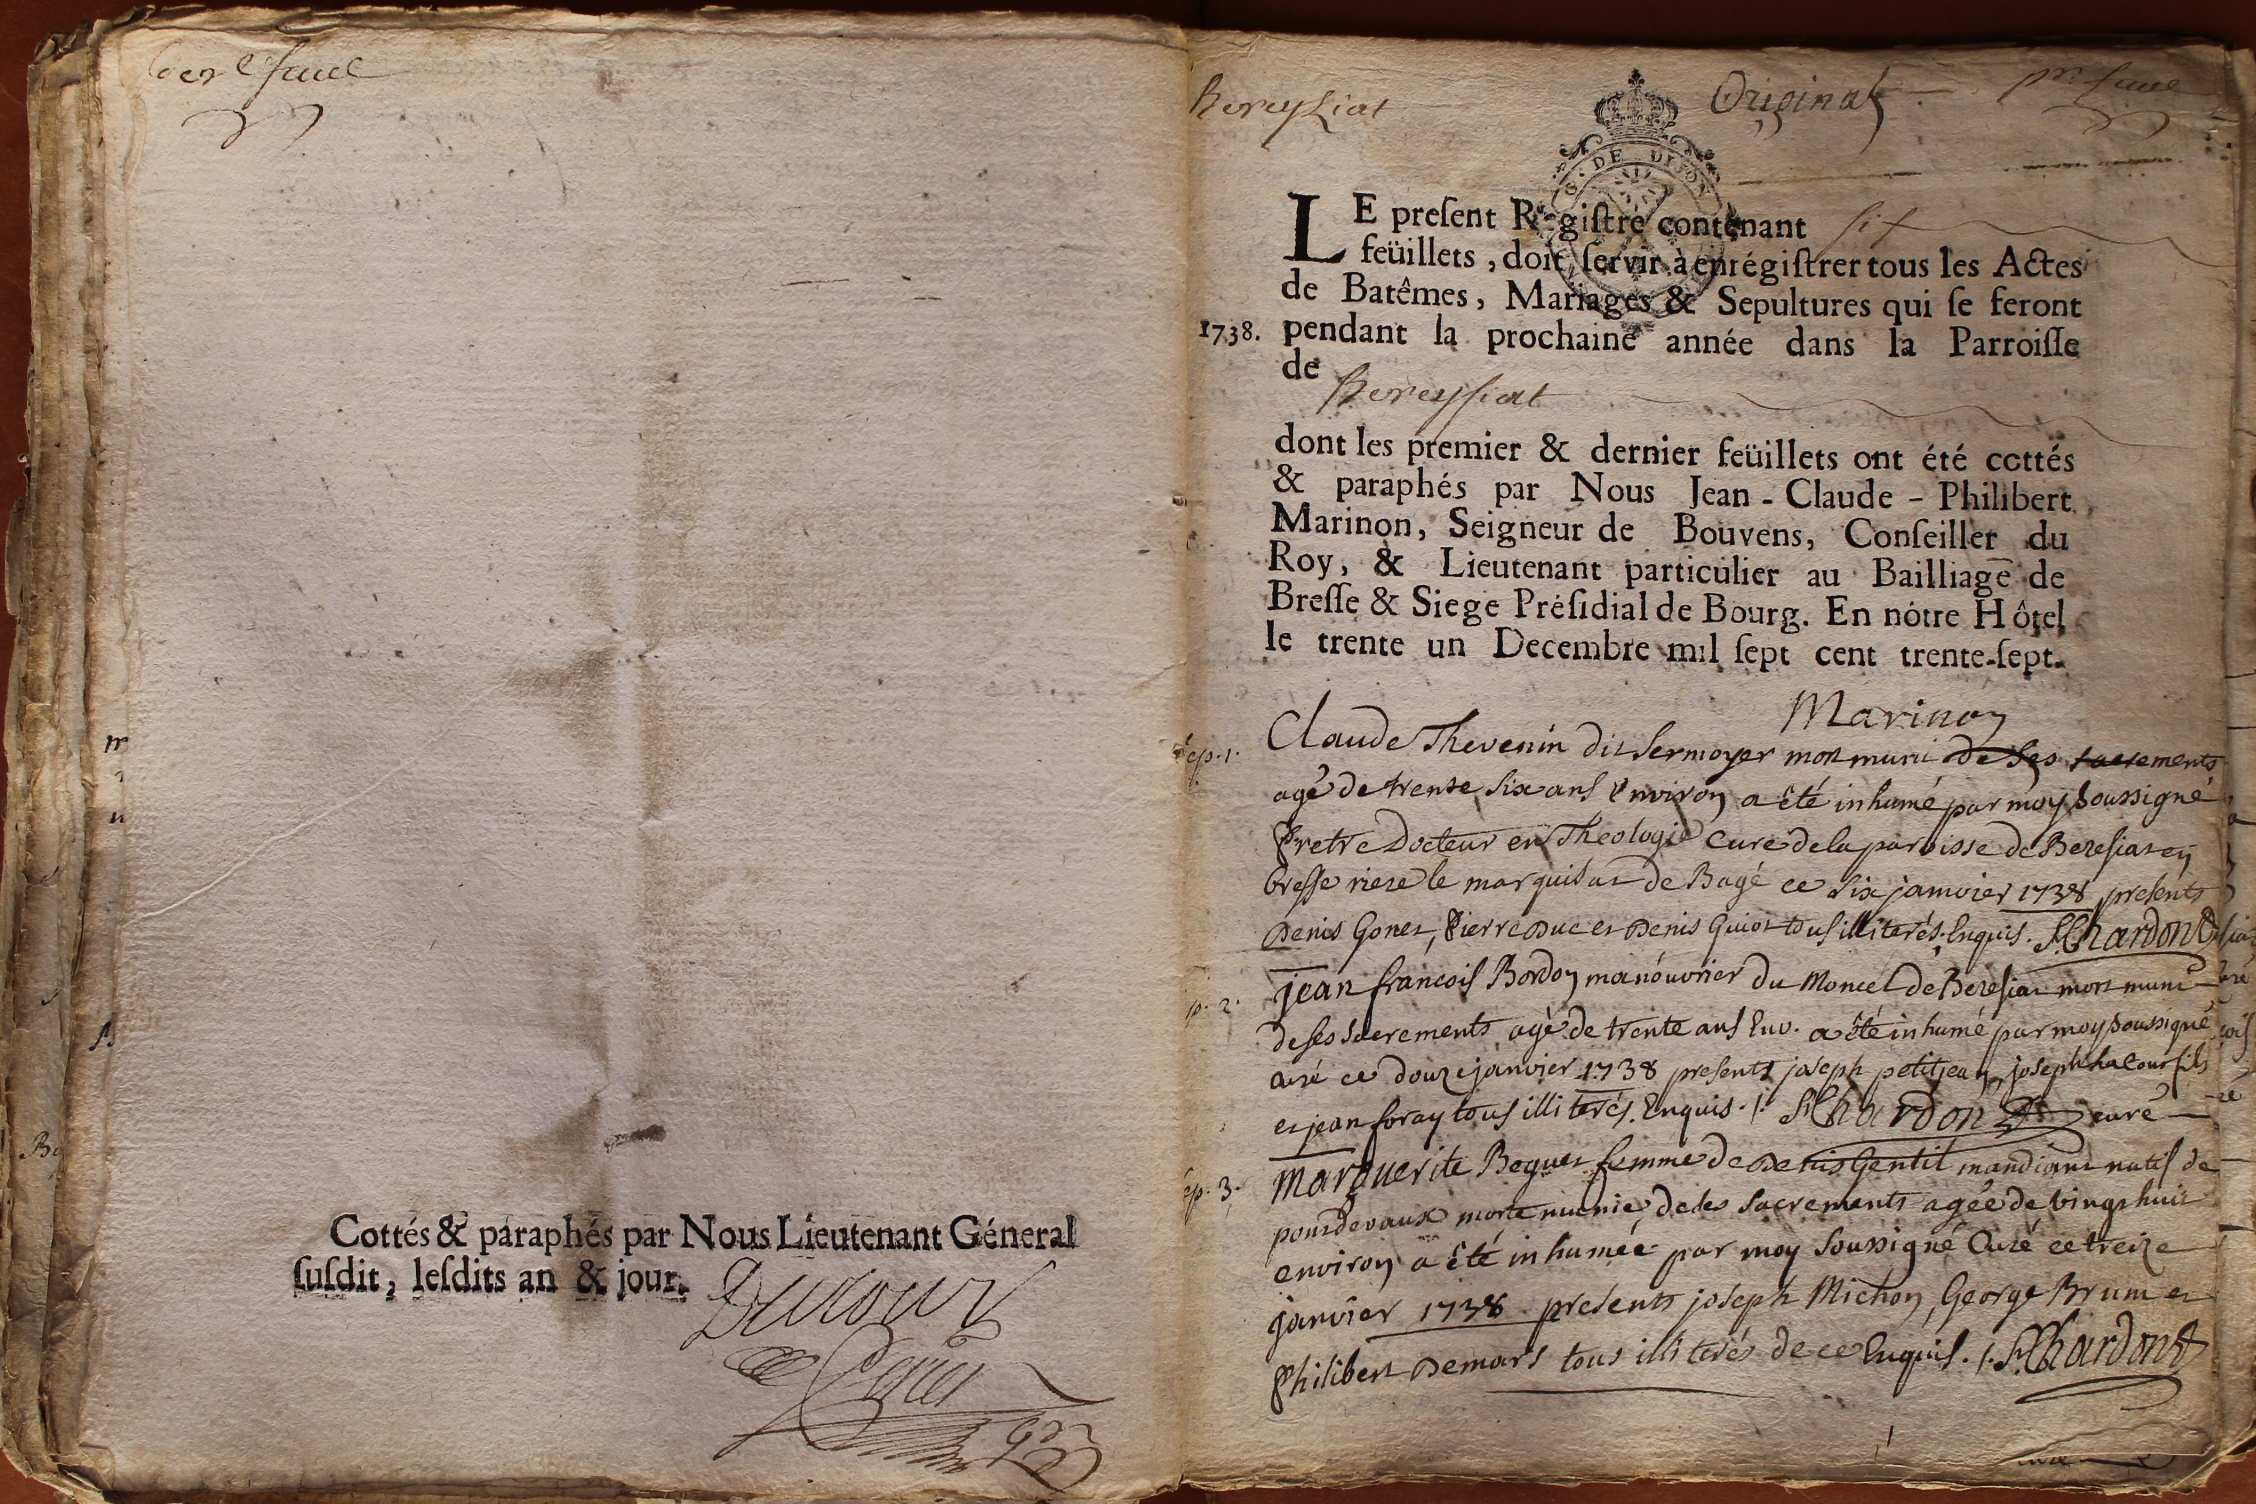 Cottés & paraphés par Nous Lieutenant Géneral
ſuſdit, leſdits an & jour.
Bereyziat
Original
G. DE DIJON
LE preſent Regiſtre contenant six
feüillets, doit ſervir à enrégiſtrer tous les Actes
de Batêmes, Mariages & Sepultures qui ſe feront
1738. pendant la prochaine année dans la Parroiſſe
de
Bereysiat
dont les premier & dernier feüillets ont été cottés
& paraphés par Nous Jean-Claude-Philibert
Marinon, Seigneur de Bouvens, Conſeiller du
Roy, & Lieutenant particulier au Bailliage de
Breſſe & Siege Préſidial de Bourg. En nótre Hôtel
le trente un Decembre mil ſept cent trente-ſept.
Marinon
Sep. 1.
Claude Thevenin dit Sermoyer mort muni de ses sacrements
agé de trente six ans environ a êté inhumé par moy soussigné
Pretre Docteur en Theologie Curé de la paroisse de Beresiat en
bresse riere le marquisat de Bagé ce six janvier 1738 presents
Denis Gonet, Pierre Duc et Denis Guiot tous illiterés. Enquis. Chardon
p. 2.
jean francois Bordon manouvrier du Moncel de Beresiat mort muni
de ses sacrements agé de trente ans Env. a êté inhumé par moy soussigné
curé ce douze janvier 1738 presents joseph petitjean, joseph fils
et jean foray tous illiterés. Enquis. Chardon curé
ep. 3.
Marguerite Beguet femme de Denis Gentil mandiant natif de
pontdevaux morte munie de ses sacrements agée de vingt huit
environ a êté inhumée par moy soussigné Curé ce treize
janvier 1738 presents joseph Michon, George Brun et
Philibert Demars tous illiterés de ce Enquis. Chardon